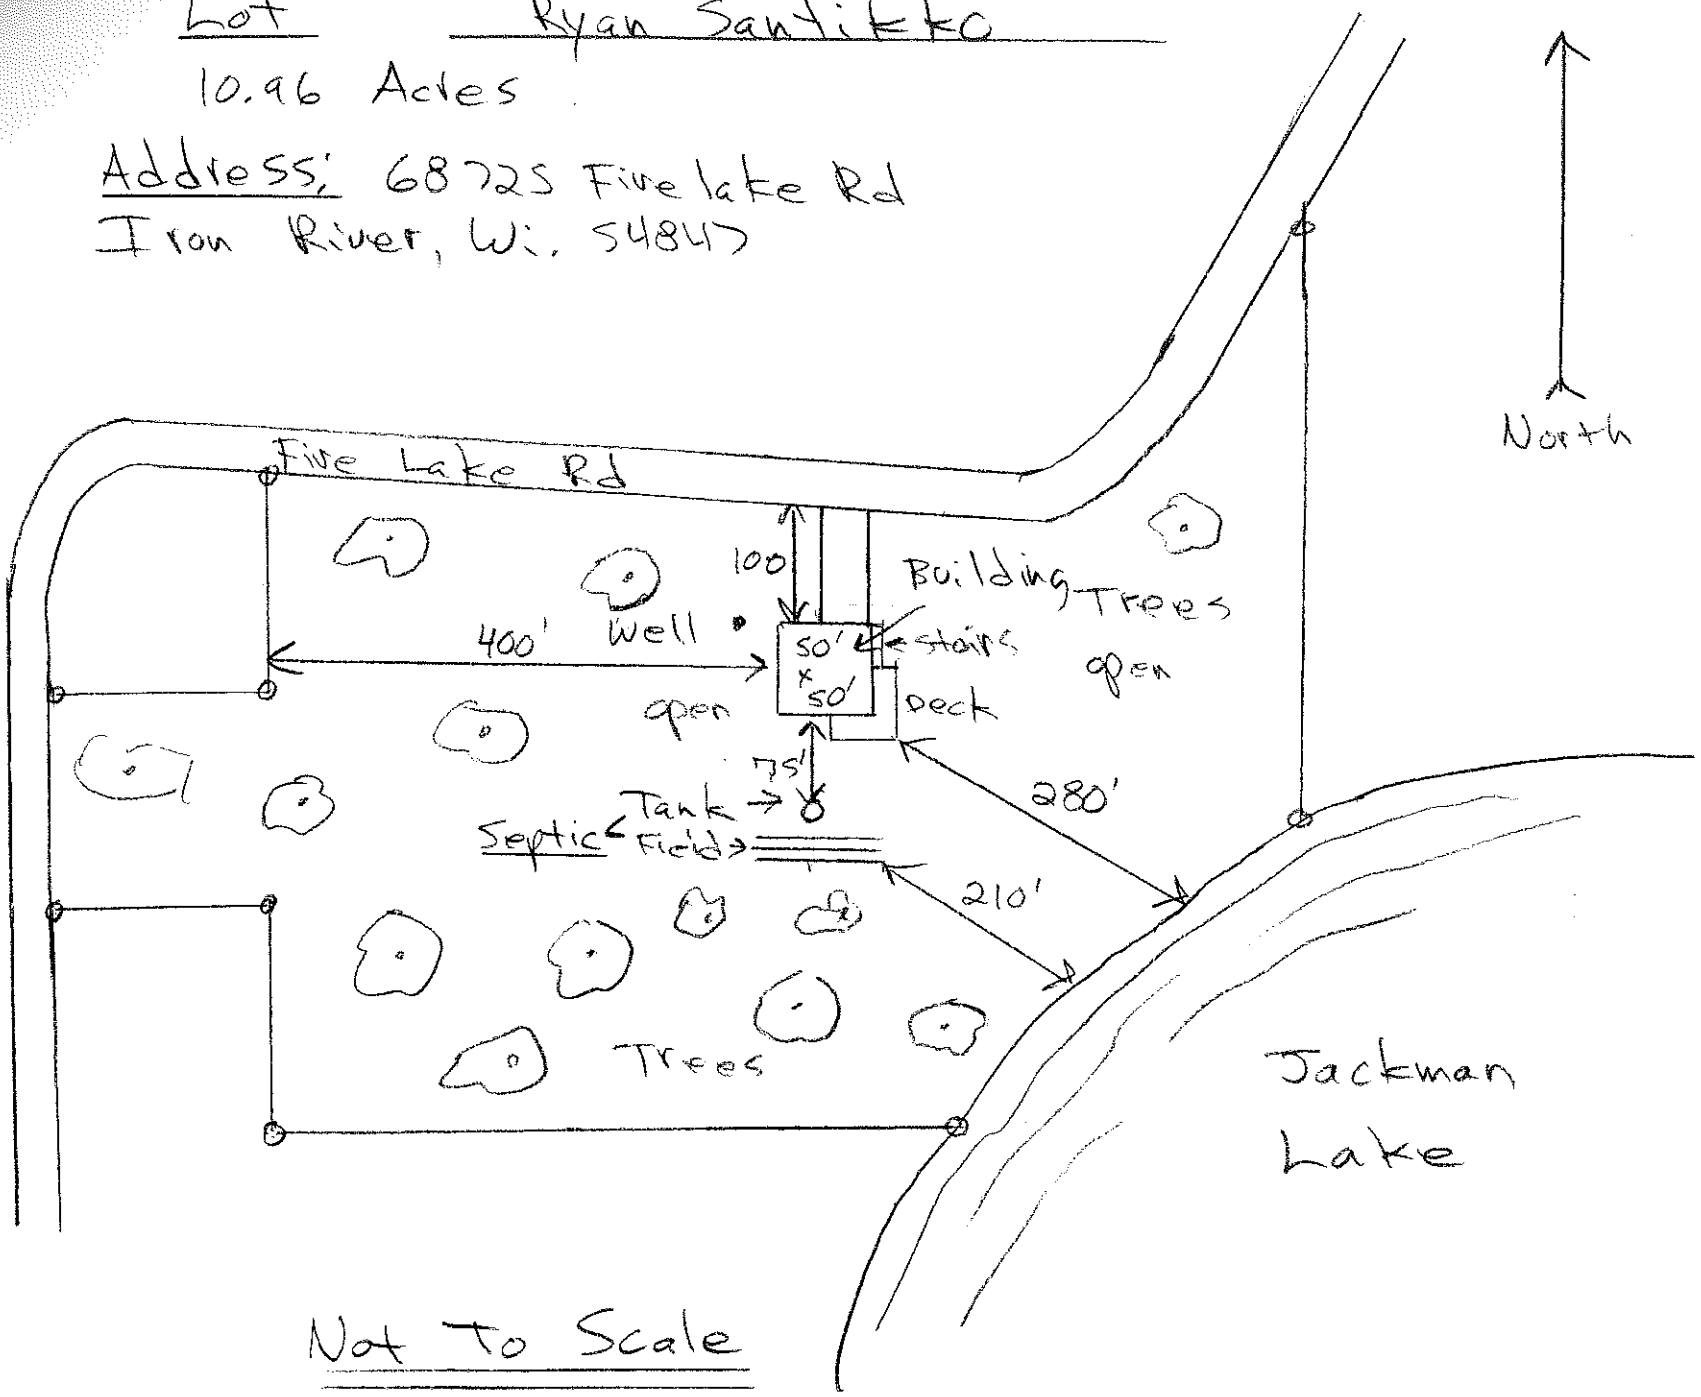 Lot Ryan Santikko
10.96 Acres
Address: 68725 Five lake Rd
Iron River, Wi. 54847
North
Five Lake Rd
100
Building
Trees
open
Well
400'
50'
x
50'
stairs
open
Deck
75'
280'
Tank
Septic Field
210'
Trees
Jackman
Lake
Not To Scale